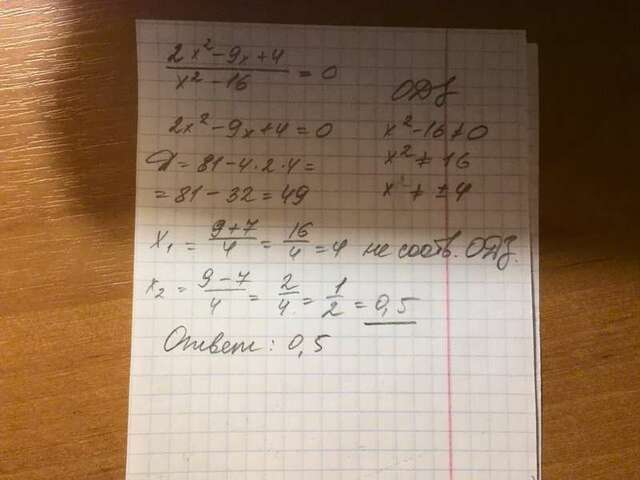 2x² - 9x + 4 / x² - 16 = 0
ОДЗ
2x² - 9x + 4 = 0
x² - 16 ≠ 0
Д = 81 - 4 · 2 · 4 =
x² ≠ 16
= 81 - 32 = 49
x ≠ ± 4
x₁ = 9 + 7 / 4 = 16 / 4 = 4 не соотв. ОДЗ.
x₂ = 9 - 7 / 4 = 2 / 4 = 1 / 2 = 0,5
Ответ: 0,5